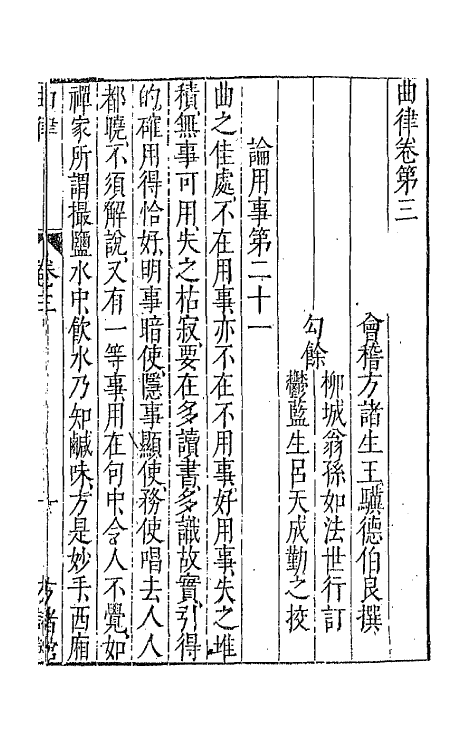 曲律卷第三
會稽方諸生王驥德伯良撰
柳城翁孫如法世行訂
勾餘
鬱藍生呂天成勤之挍
論用事第二十一
曲之佳處不在用事亦不在不用事好用事失之堆
積無事可用失之枯寂要在多讀書多識故實引得
的確用得恰好明事暗使隱事顯使務使唱去人人
都曉不須解說又有一等事用在句中令人不覺如
禪家所謂撮鹽水中飲水乃知鹹味方是妙手西廂
曲律
卷三
一
方諸館